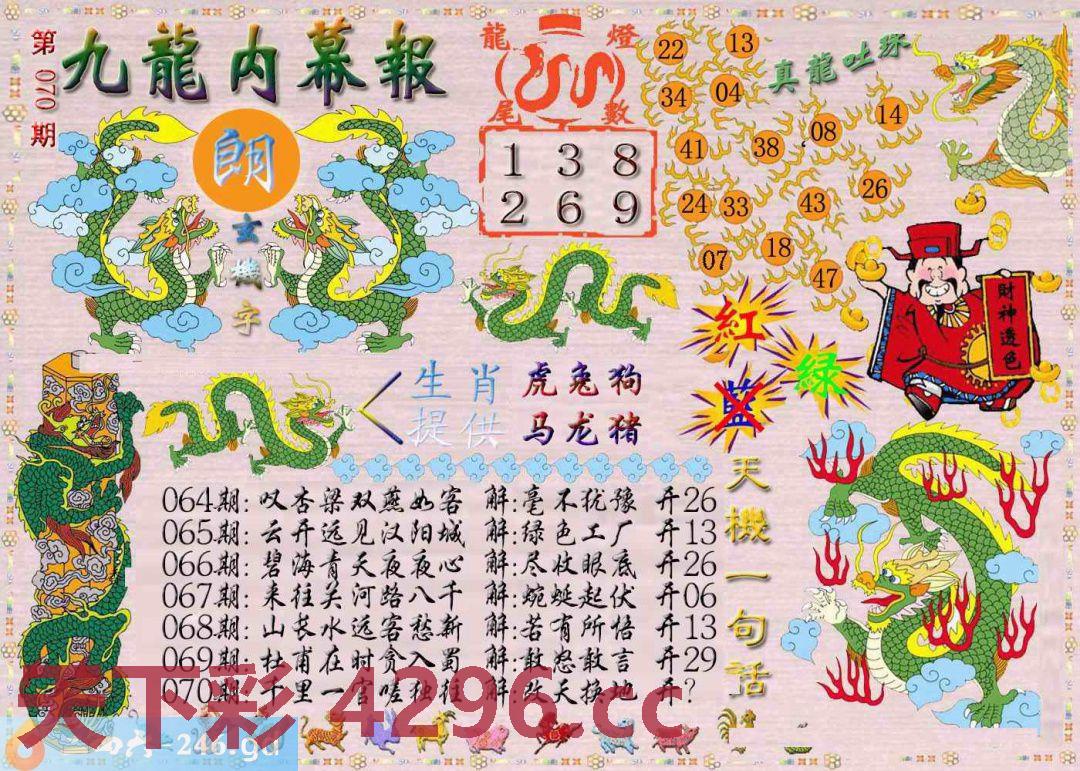 第070期
九龍内幕報
朗
玄機字
龍燈
尾數
1 3 8
2 6 9
真龍吐珠
22 13
34 04
41 38 08 14
24 33 43 26
07 18 47
財神透色
紅
藍
绿
生肖
提供
虎兔狗
马龙猪
天機一句话
064期:叹杏梁双燕如客 解:毫不犹豫 开26
065期:云开远见汉阳城 解:绿色工厂 开13
066期:碧海青天夜夜心 解:尽收眼底 开26
067期:来往关河路八千 解:蜿蜒起伏 开06
068期:山长水远客愁新 解:苦有所悟 开13
069期:杜甫在时贪入蜀 解:敢怒敢言 开29
070期:千里一官嗟独往 解:改天换地 开?
天下彩 4296.cc
246.gd